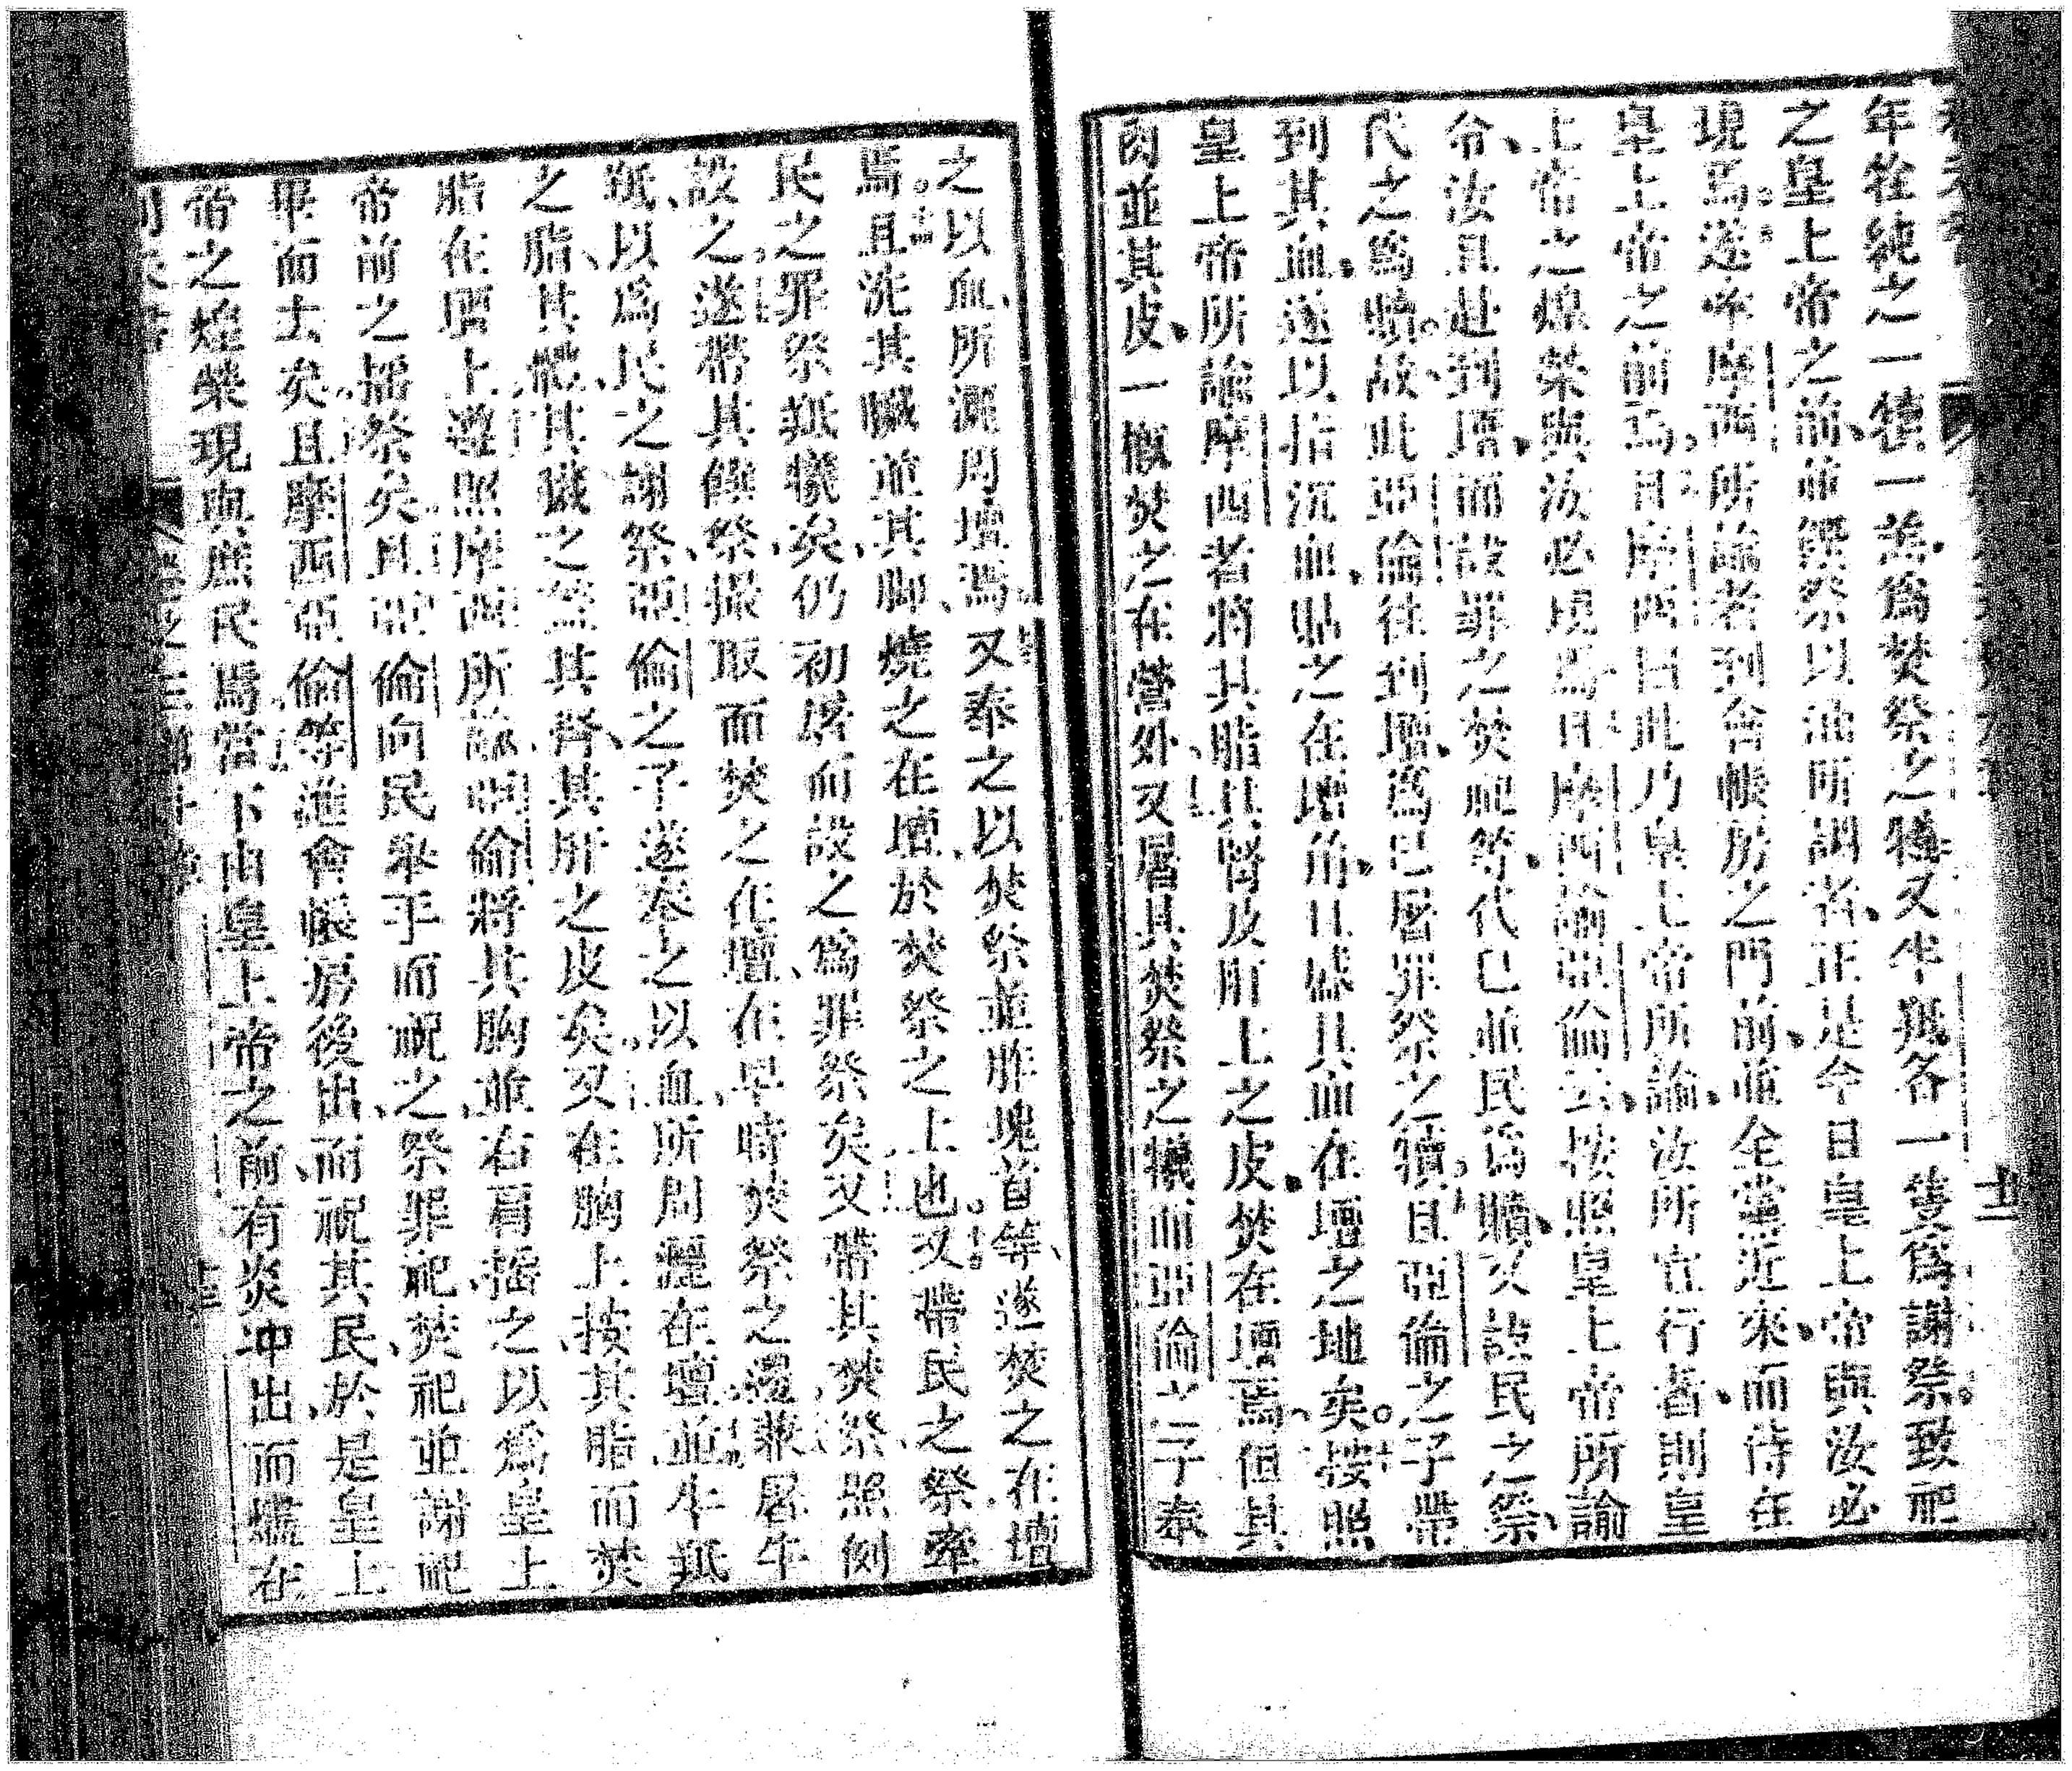 年牷純之一犢一羔爲焚祭之犧又牛羝各一隻爲謝祭致祀
之皇上帝之前並饌祭以油所調者正是今日皇上帝與汝必
現焉遂牽摩西所諭者到會帳房之門前並全黨近來而待在
皇上帝之前焉且摩西曰此乃皇上帝所諭汝所宜行者則皇
上帝之煌榮與汝必現焉且摩西諭亞倫云按照皇上帝所諭
令汝且赴到壇而設罪之焚祀等代己並民爲贖又設民之祭
代之爲贖故此亞倫往到壇爲己屠罪祭之犢且亞倫之子帶
到其血遂以指沉血貼之在壇角且盛其血在壇之地矣按照
皇上帝所諭摩西者將其脂其腎及肝上之皮焚在壇焉但其
肉並其皮一概焚之在營外又屠其焚祭之犧而亞倫之子奉
之以血所灑周壇焉又奉之以焚祭並胙塊首等遂焚之在壇
焉且洗其臟並其脚燒之在壇於焚祭之上也又帶民之祭牽
民之罪祭羝犧矣仍初屠而設之爲罪祭矣又帶其焚祭照例
設之遂帶其饌祭撮取而焚之在壇在早時焚祭之邊兼屠牛
羝以爲民之謝祭亞倫之子遂奉之以血所周灑在壇並牛羝
之脂其體其臟之蓋其腎其肝之皮矣又在胸上按其脂而焚
脂在壇上遵照摩西所諭亞倫將其胸並右肩搖之以爲皇上
帝前之搖祭矣且亞倫向民舉手而祝之祭罪祀焚祀並謝祀
畢而去矣且摩西亞倫等進會帳房後出而祝其民於是皇上
帝之煌榮現與庶民焉當下由皇上帝之前有炎冲出而壚在